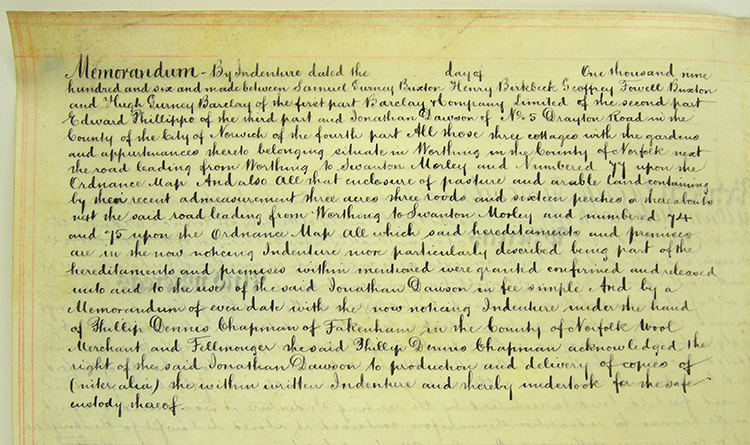 Memorandum - By Indenture dated the day of One thousand nine
hundred and six and made between Samuel Gurney Buxton Henry Birkbeck Geoffrey Fowell Buxton
and Hugh Gurney Barclay of the first part Barclay & Company Limited of the second part
Edward Phillippo of the third part and Jonathan Dawson of No. 5 Drayton Road in the
County of the City of Norwich of the fourth part All those three cottages with the gardens
and appurtenances thereto belonging situate in Worthing in the County of Norfolk next
the road leading from Worthing to Swanton Morley and Numbered 77 upon the
Ordnance Map And also All that enclosure of pasture and arable land containing
by their recent admeasurement three acres three roods and sixteen perches or thereabouts
next the said road leading from Worthing to Swanton Morley and numbered 74
and 75 upon the Ordnance Map All which said hereditaments and premises
are in the now noticing Indenture more particularly described being part of the
hereditaments and premises within mentioned were granted confirmed and released
unto and to the use of the said Jonathan Dawson in fee simple And by a
Memorandum of even date with the now noticing Indenture under the hand
of Phillip Dennis Chapman of Fakenham in the County of Norfolk Wool
Merchant and Fellmonger the said Phillip Dennis Chapman acknowledged the
right of the said Jonathan Dawson to production and delivery of copies of
(inter alia) the within written Indenture and thereby undertook for the safe
custody thereof.